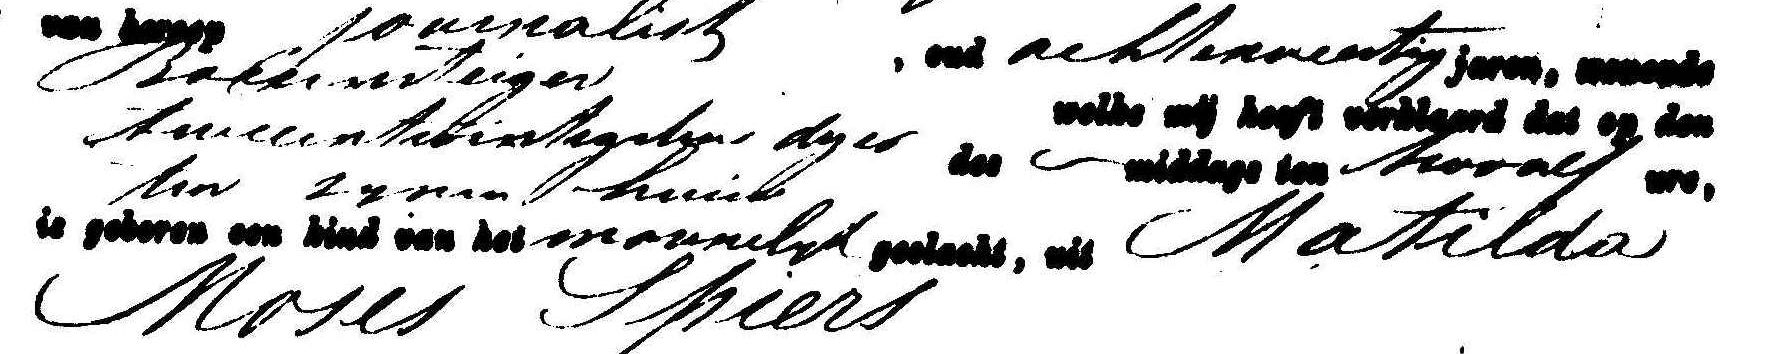 van beroep journalist, oud achtenveertig jaren, wonende
welke mij heeft verklaard dat op den
tweeentwintigsten dezer des middags ten twaalf ure,
ten zynen huise
is geboren een kind van het mannelyk geslacht, uit Matilda
Moses Spiers